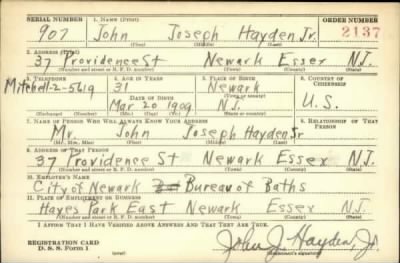 SERIAL NUMBER 1. NAME (Print) ORDER NUMBER
907 John Joseph Hayden Jr. 2137
(First) (Middle) (Last)
2. ADDRESS (Print)
37 Providence St Newark Essex N.J.
(Number and street or R. F. D. number) (Town) (County) (State)
3. TELEPHONE 4. AGE IN YEARS 5. PLACE OF BIRTH 6. COUNTRY OF CITIZENSHIP
Mitchell-2-5619 31 Newark
DATE OF BIRTH (Town or county)
Mar 20 1909 N.J. U.S.
(Exchange) (Number) (Mo.) (Day) (Yr.) (State or country)
7. NAME OF PERSON WHO WILL ALWAYS KNOW YOUR ADDRESS 8. RELATIONSHIP OF THAT PERSON
Mr. John Joseph Hayden Sr.
(Mr., Mrs., Miss) (First) (Middle) (Last)
9. ADDRESS OF THAT PERSON
37 Providence St Newark Essex N.J.
(Number and street or R. F. D. number) (Town) (County) (State)
10. EMPLOYER'S NAME
City of Newark Bureau of Baths
11. PLACE OF EMPLOYMENT OR BUSINESS
Hayes Park East Newark Essex N.J.
(Number and street or R. F. D. number) (Town) (County) (State)
I AFFIRM THAT I HAVE VERIFIED ABOVE ANSWERS AND THAT THEY ARE TRUE.
REGISTRATION CARD
D. S. S. Form 1 (over)
John J. Hayden, Jr.
(Registrant's signature)